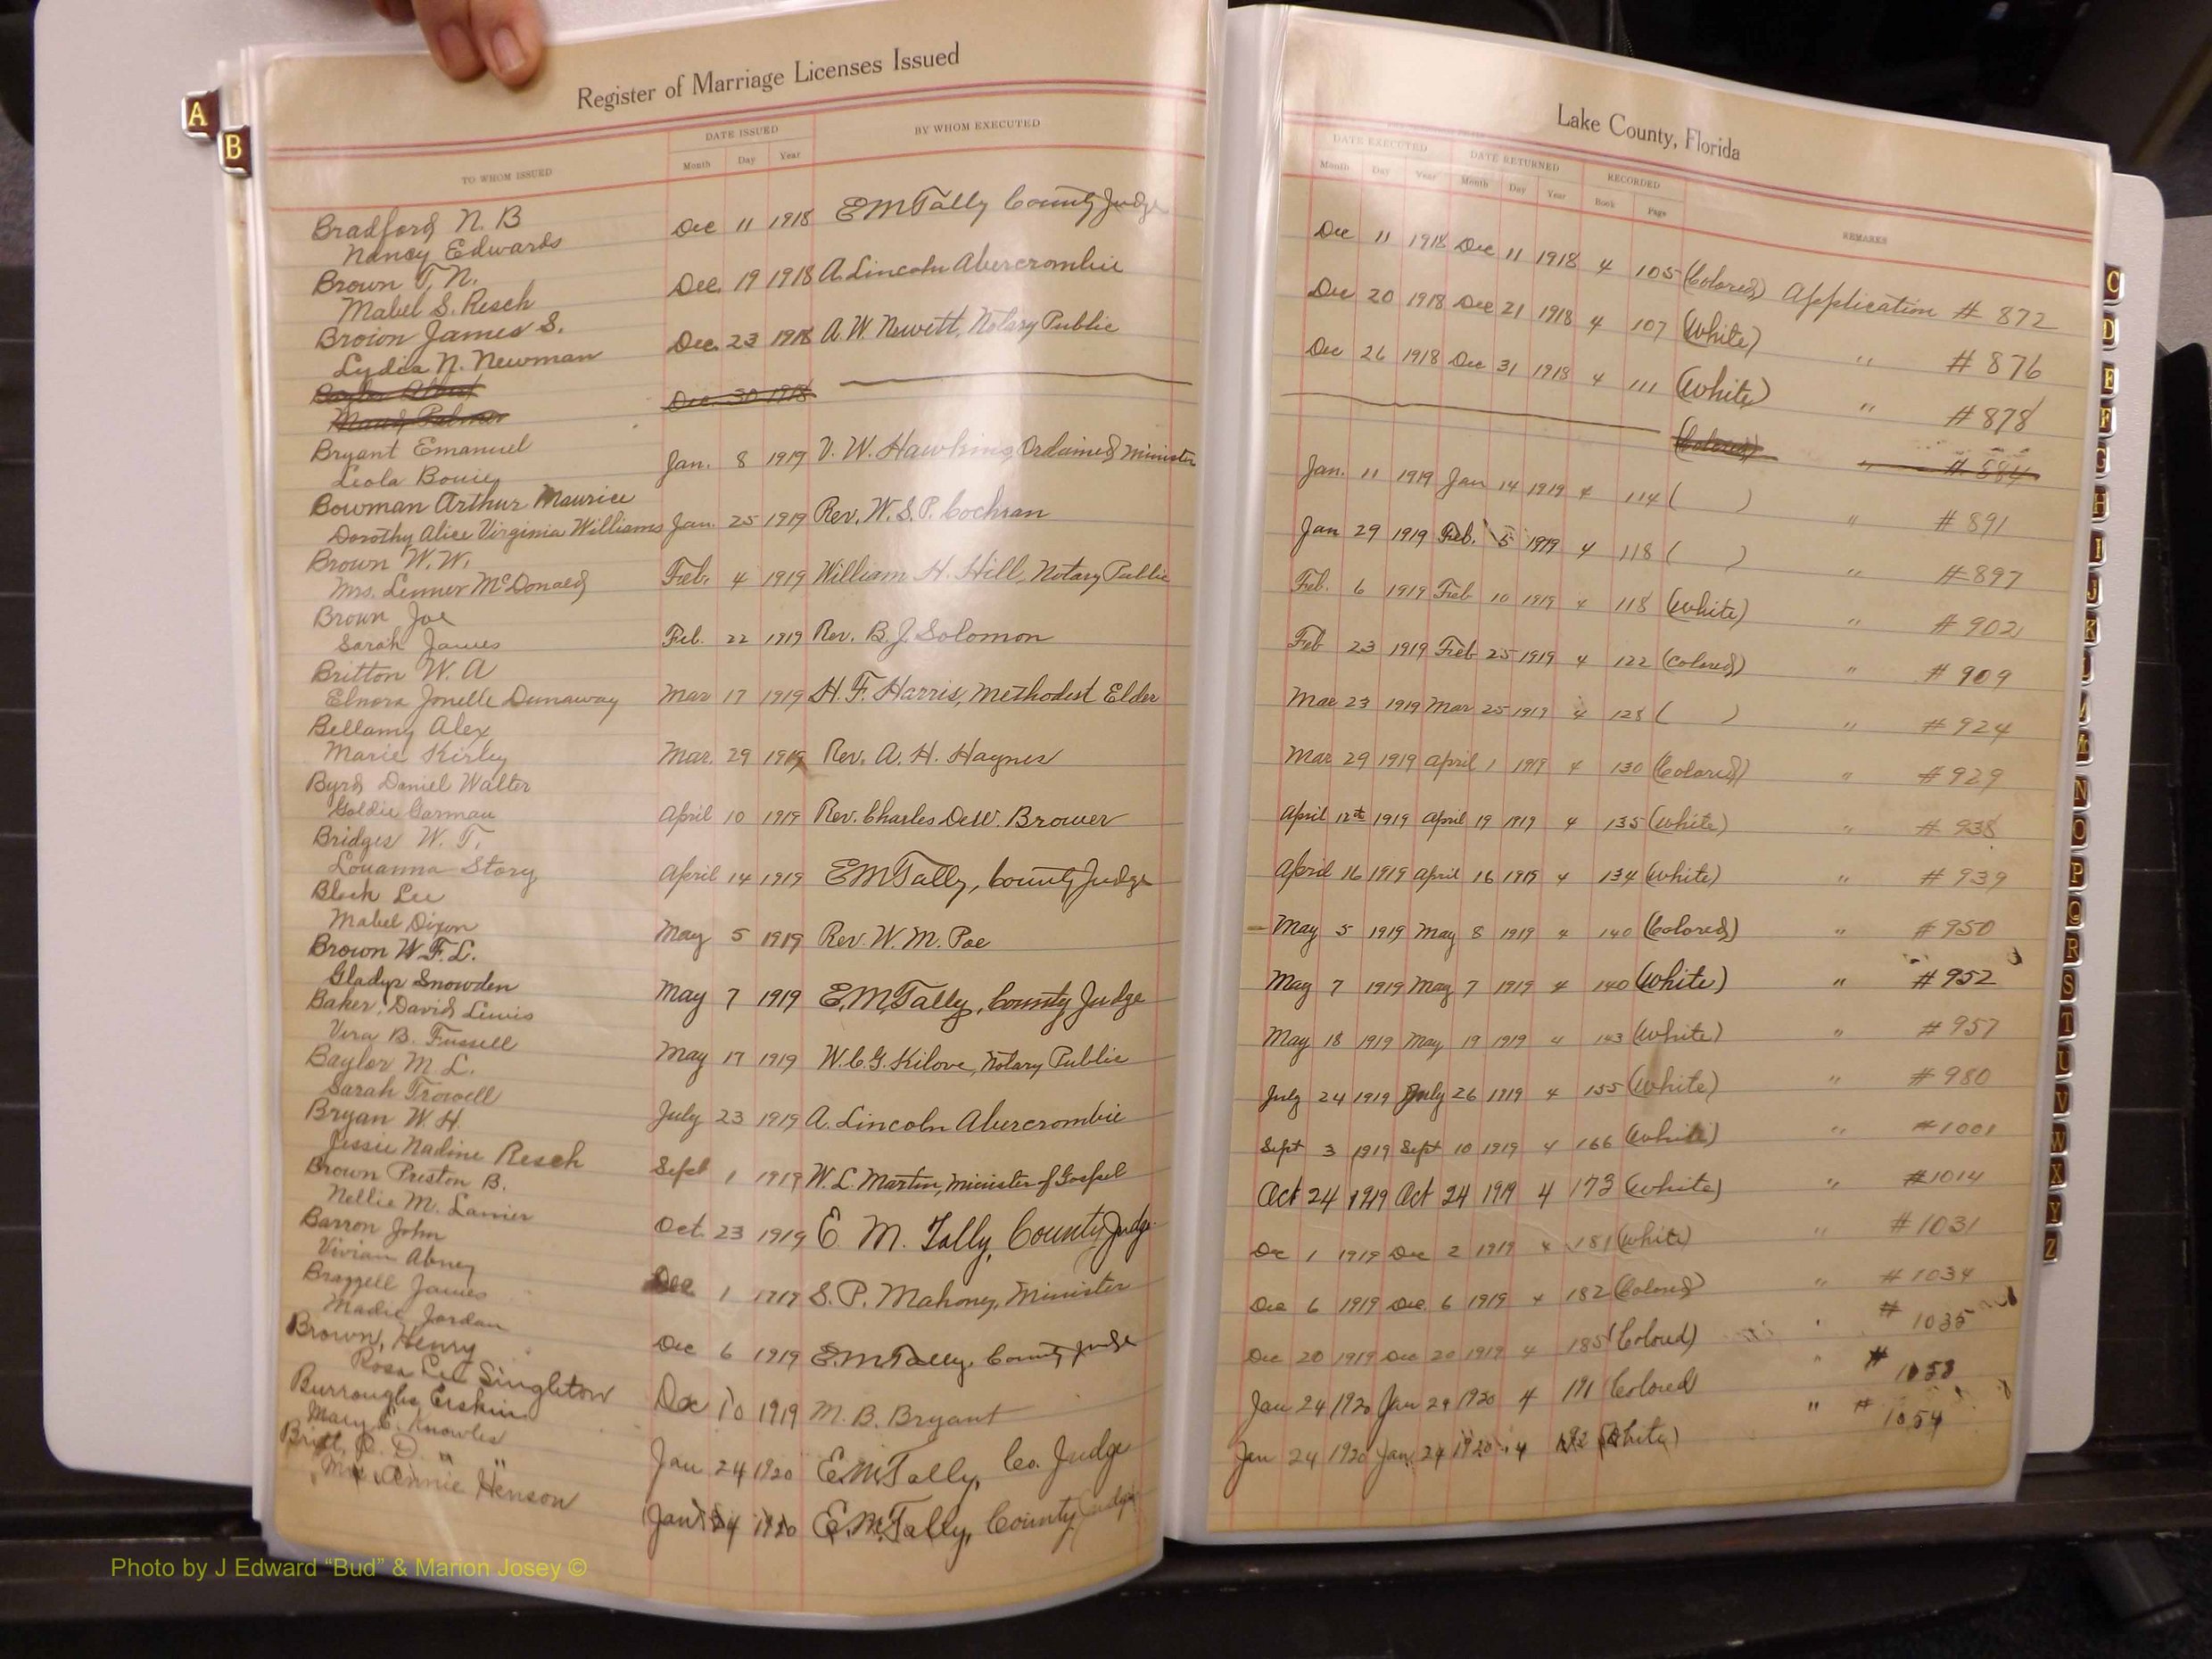 Register of Marriage Licenses Issued
TO WHOM ISSUED
DATE ISSUED
Month Day Year
BY WHOM EXECUTED
Bradford N. B
Nancy Edwards
Dec 11 1918 E M Tally County Judge
Brown T. N.
Mabel S. Resch
Dec. 19 1918 A. Lincoln Abercrombie
Brown James S.
Lydia N. Newman
Dec. 23 1918 A. W. Newett, Notary Public
Dec. 30 1918
Bryant Emanuel
Leola Bouie
Jan. 8 1919 V. W. Hawkins, Ordained Minister
Bowman Arthur Maurice
Dorothy Alice Virginia Williams
Jan. 25 1919 Rev. W. S. P. Cochran
Brown W. W.
Mrs. Lenner McDonald
Feb. 4 1919 William H. Hill, Notary Public
Brown Joe
Sarah James
Feb. 22 1919 Rev. B. J. Solomon
Britton W. A
Elnora Jonelle Dunaway
Mar 17 1919 H. F. Harris, Methodist Elder
Bellamy Alex
Marie Kirley
Mar. 29 1919 Rev. A. H. Haynes
Byrd Daniel Walter
Goldie Garman
April 10 1919 Rev. Charles DeW. Brower
Bridges W. T.
Louanna Story
April 14 1919 E M Tally, County Judge
Block Lee
Mabel Dixon
May 5 1919 Rev. W. M. Poe
Brown W. F. L.
Gladys Snowden
May 7 1919 E. M. Tally, County Judge
Baker, David Lewis
Vera B. Fussell
May 17 1919 W. C. G. Kilove, Notary Public
Baylor M. L.
Sarah Trowell
July 23 1919 A. Lincoln Abercrombie
Bryan W. H.
Jessie Nadine Resch
Sept 1 1919 W. L. Martin, Minister of Gospel
Brown Preston B.
Nellie M. Lanier
Oct. 23 1919 E M. Tally, County Judge
Barron John
Vivian Abney
Dec. 1 1919 S. P. Mahoney, Minister
Brazzell James
Madie Jordan
Dec 6 1919 E. M Tally, County Judge
Brown, Henry
Rosa Lee Singleton
Dec 10 1919 M. B. Bryant
Burroughs Erskin
Mary E. Knowles
Jan 24 1920 E. M. Tally, Co. Judge
Britt, D. D.
Mrs Annie Henson
Jan 24 1920 E. M. Tally, County Judge
Lake County, Florida
DATE EXECUTED DATE RETURNED RECORDED
Month Day Year Month Day Year Book Page REMARKS
Dec 11 1918 Dec 11 1918 4 105 (Colored) Application # 872
Dec 20 1918 Dec 21 1918 4 107 (White) " # 876
Dec 26 1918 Dec 31 1918 4 111 (White) " # 878
(Colored) " # 884
Jan. 11 1919 Jan 14 1919 4 114 ( ) " # 891
Jan 29 1919 Feb. 5 1919 4 118 ( ) " # 897
Feb. 6 1919 Feb 10 1919 4 118 (White) " # 902
Feb 23 1919 Feb 25 1919 4 122 (Colored) " # 909
Mar 23 1919 Mar 25 1919 4 128 ( ) " # 924
Mar 29 1919 April 1 1919 4 130 (Colored) " # 929
April 12th 1919 April 19 1919 4 135 (White) " # 938
April 16 1919 April 16 1919 4 134 (White) " # 939
May 5 1919 May 8 1919 4 140 (Colored) " # 950
May 7 1919 May 7 1919 4 140 (White) " # 952
May 18 1919 May 19 1919 4 143 (White) " # 957
July 24 1919 July 26 1919 4 155 (White) " # 980
Sept 3 1919 Sept 10 1919 4 166 (White) " # 1001
Oct 24 1919 Oct 24 1919 4 173 (White) " # 1014
Dec 1 1919 Dec 2 1919 4 181 (White) " # 1031
Dec 6 1919 Dec. 6 1919 4 182 (Colored) " # 1034
Dec 20 1919 Dec 20 1919 4 185 (Colored) " # 1035
Jan 24 1920 Jan 29 1920 4 191 (Colored " # 1053
Jan 24 1920 Jan. 24 1920 4 192 (White) " # 1054
A
B
C
D
E
F
G
H
I
J
K
M
N
O
P
Q
R
S
T
U
V
W
X
Y
Z
Photo by J Edward “Bud” & Marion Josey ©